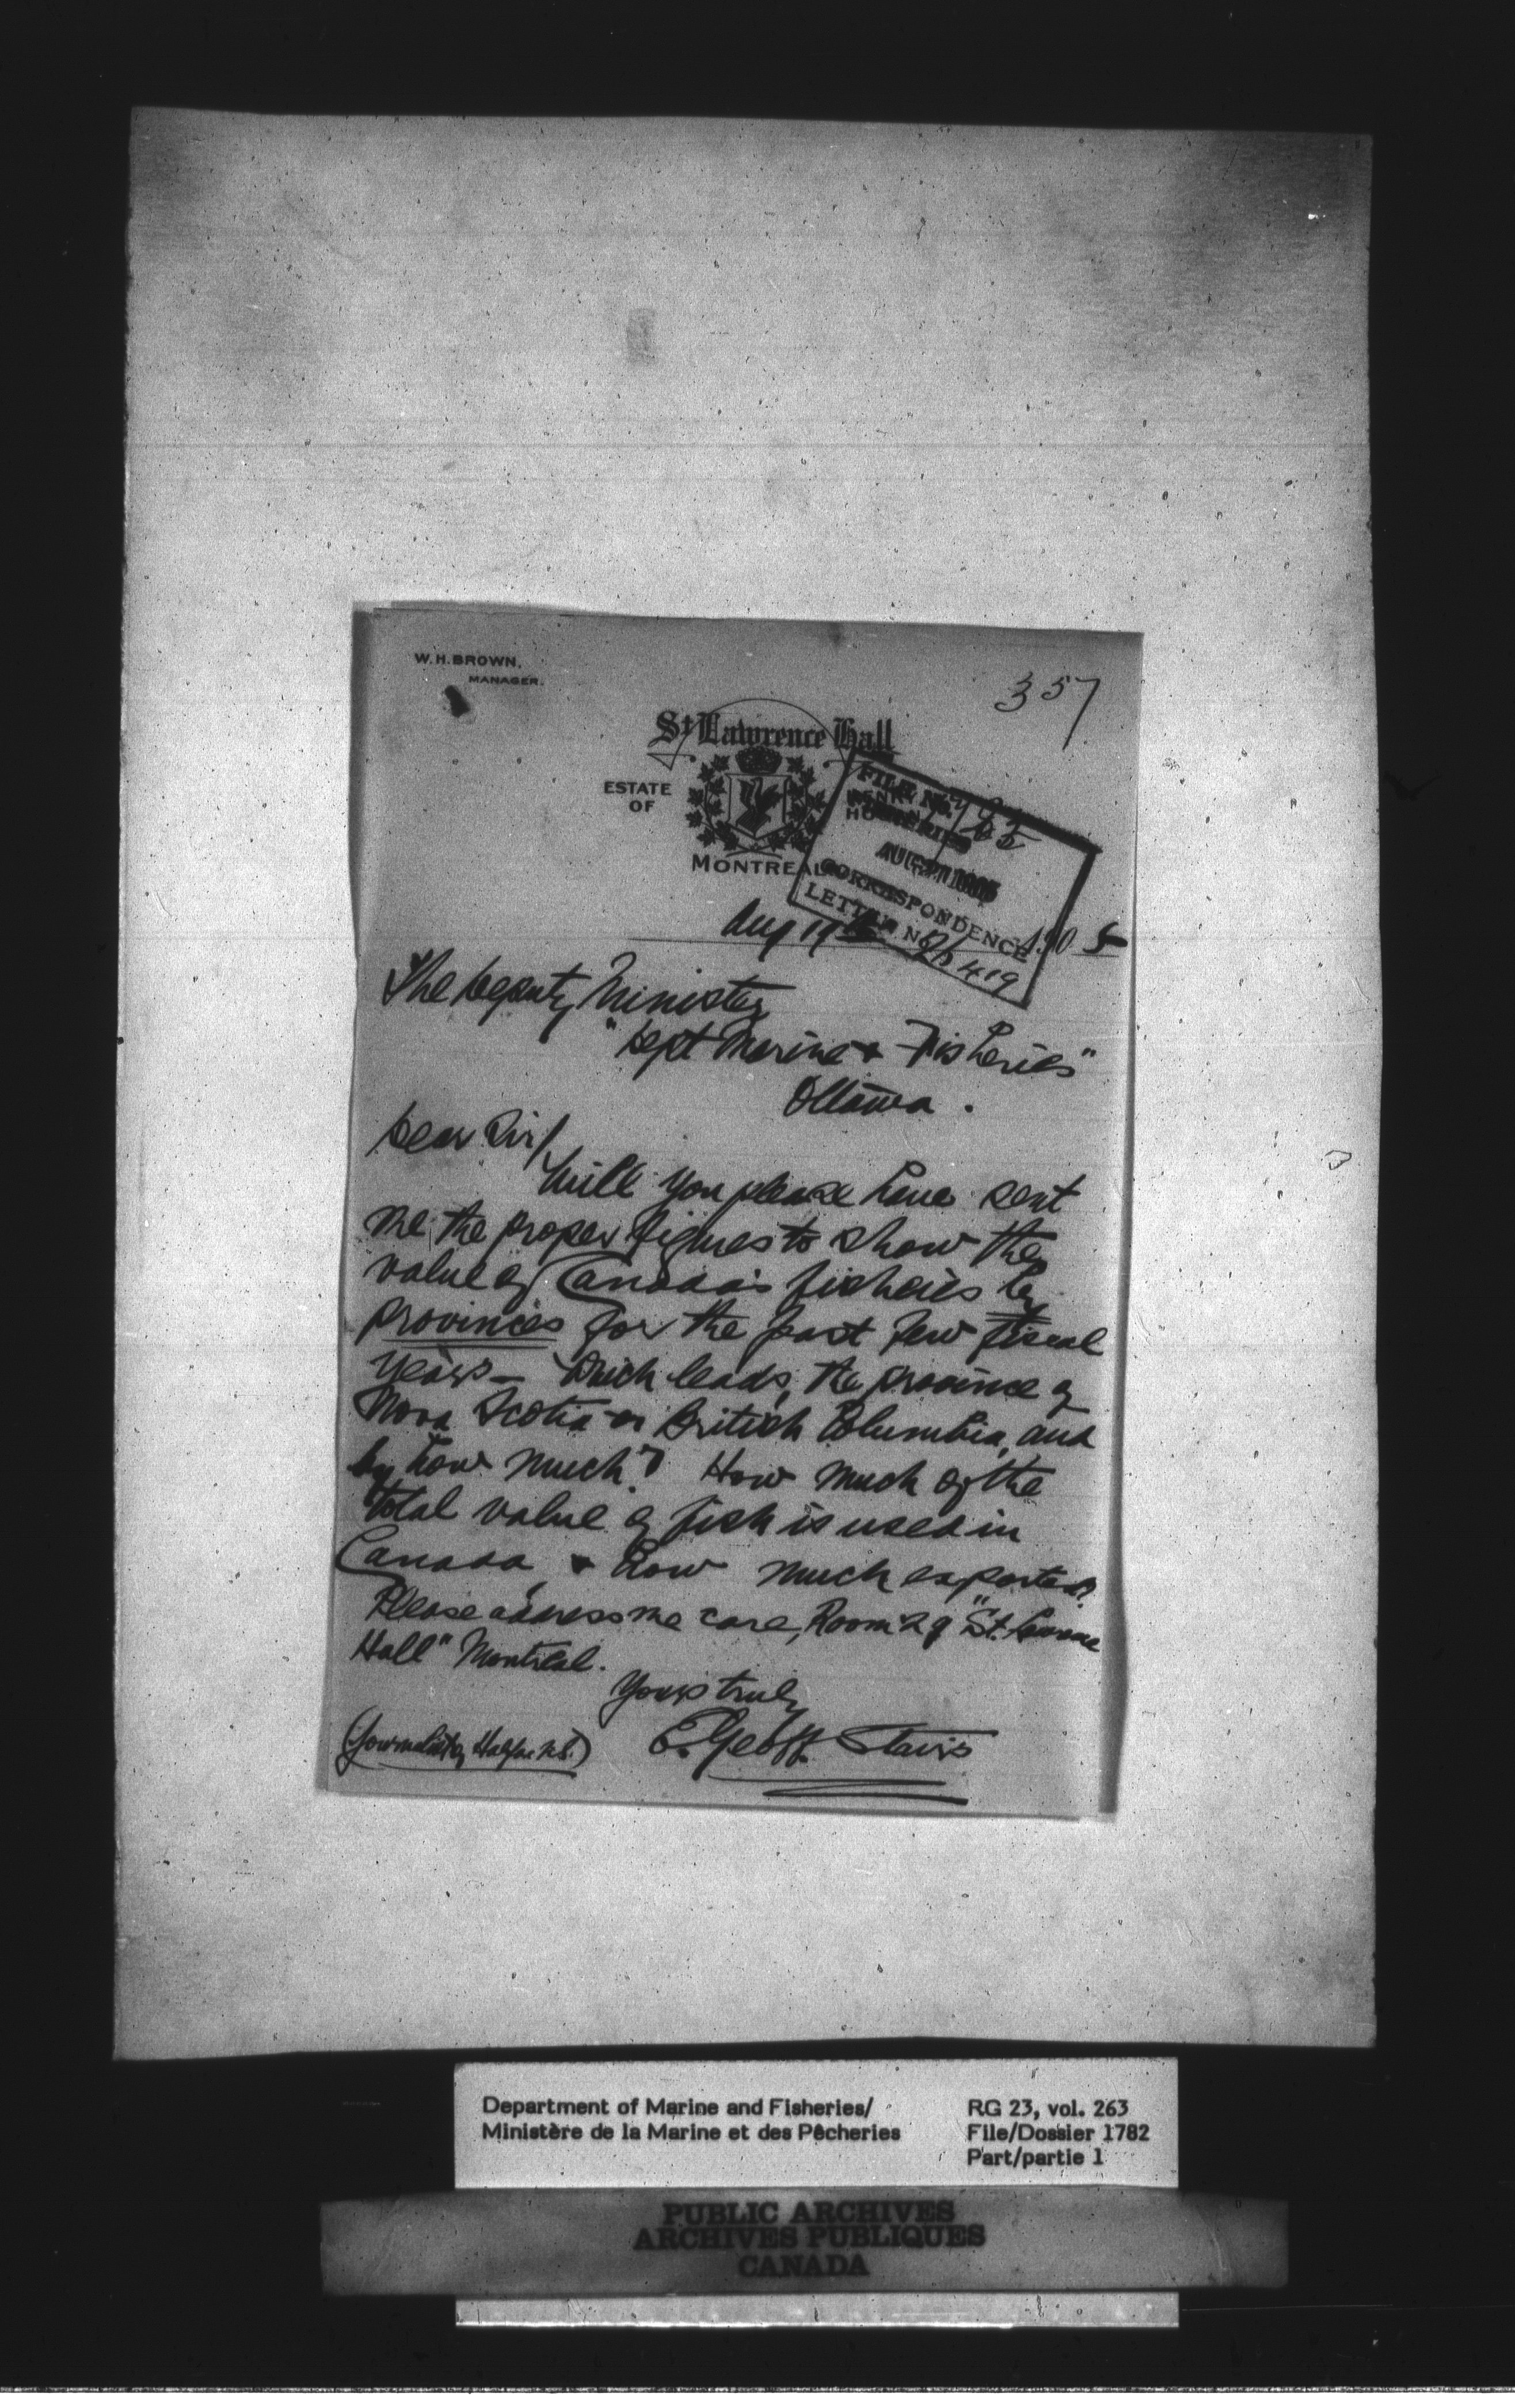 W. H. BROWN,
MANAGER.
357
St Lawrence Hall
ESTATE
OF
MONTREAL
FILE No.
FISHERIES
AUG 21 1905
CORRESPONDENCE
LETTER No.
Aug 19th 1905
The Deputy Minister
"Dept Marine & Fisheries"
Ottawa.
Dear Sir/
Will you please have sent
me the proper figures to show the
value of Canada's fisheries by
provinces for the past few fiscal
years — Which leads, the province of
Nova Scotia or British Columbia, and
by how much? How much of the
total value of fish is used in
Canada & how much exported?
Please address me care, Room 29 "St. Lawrence
Hall" Montreal.
Yours truly
(Journalist, Halifax N.S.) E. Geoff. Stairs
Department of Marine and Fisheries/
Ministère de la Marine et des Pêcheries
RG 23, vol. 263
File/Dossier 1782
Part/partie 1
PUBLIC ARCHIVES
ARCHIVES PUBLIQUES
CANADA